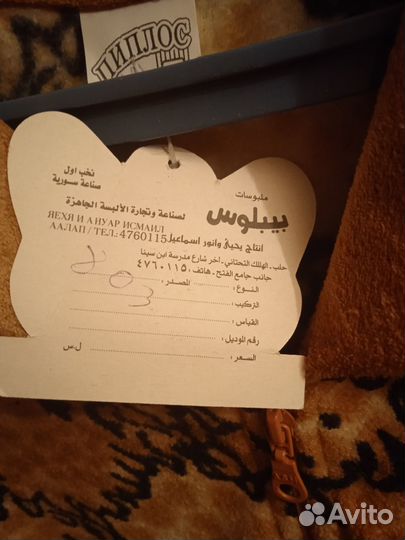 ЦИПЛОС
نخب اول
صناعة سورية
ملبوسات
بيبلوس
لصناعة وتجارة الألبسة الجاهزة
ЯЕХЯ И АНУАР ИСМАИЛ
ААЛАП / ТЕЛ.: 4760115
انتاج يحيى وانور اسماعيل
حلب . الهلك التحتاني . آخر شارع مدرسة ابن سينا
جانب جامع الفتح . هاتف : ٤٧٦٠١١٥
النوع : المصدر :
التركيب :
القياس :
رقم الموديل :
السعر : ل.س
Avito